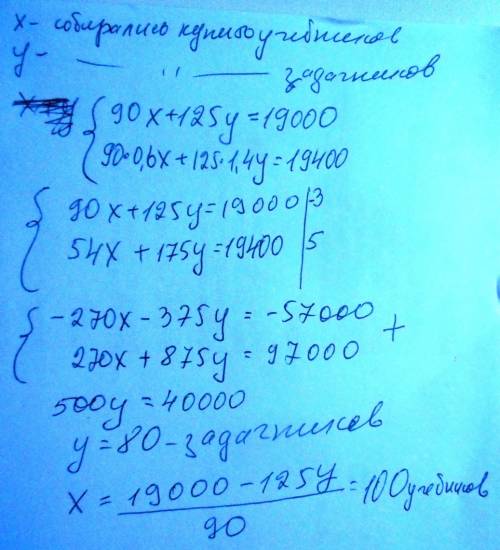 x - собирались купить учебников
y - —— " —— задачников
{ 90x+125y=19000
90·0,6x+125·1,4y=19400
{ 90x+125y=19000 | -3
54x+175y=19400 | 5
{ -270x-375y=-57000 +
270x+875y=97000
500y=40000
y=80-задачников
x = (19000-125y)/90 = 100 учебников